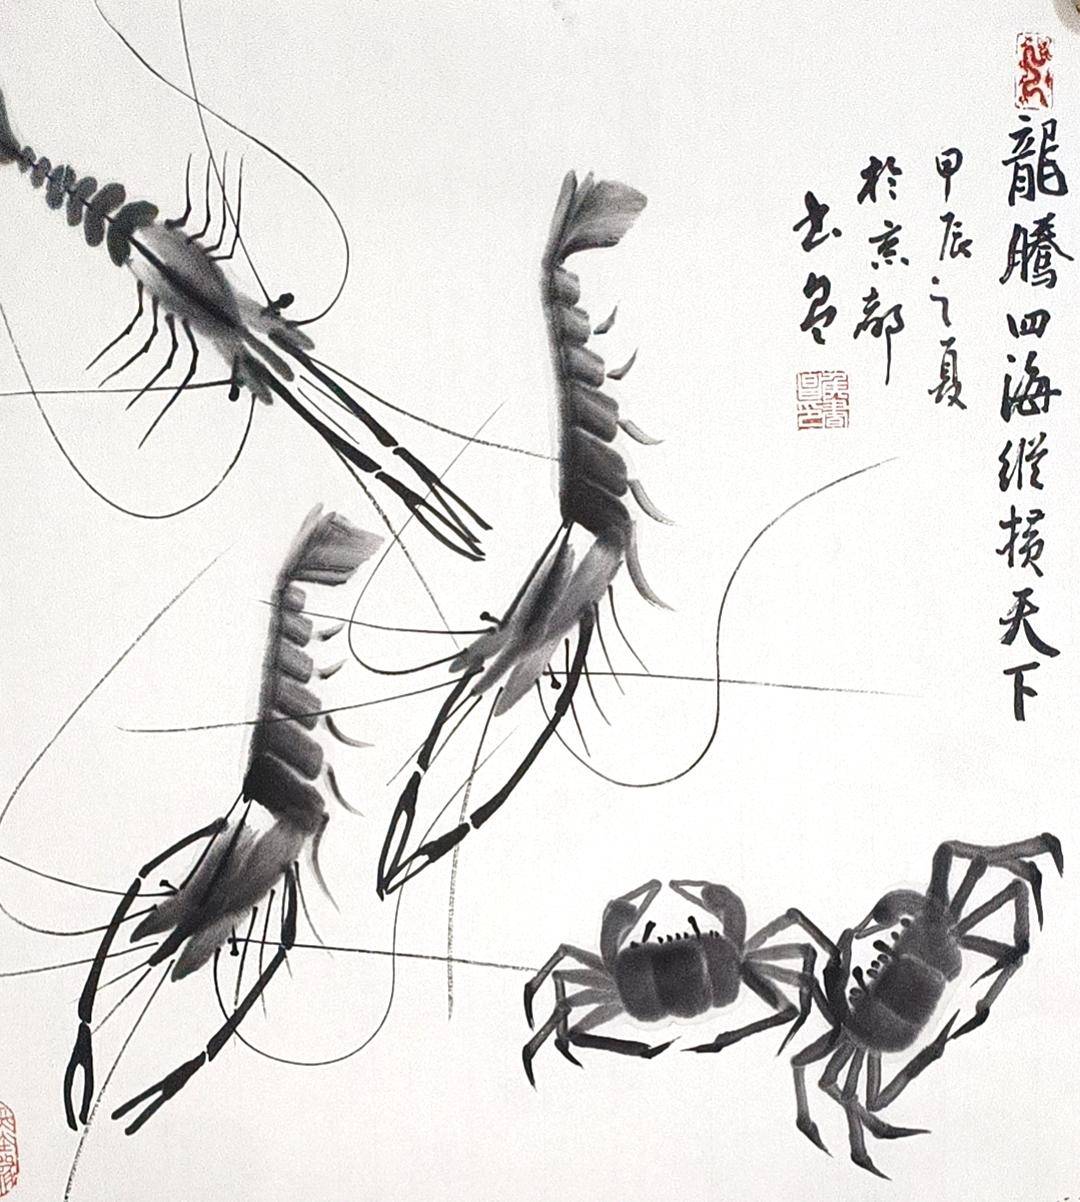 龍騰四海縱横天下
甲辰之夏
於京都
书昌